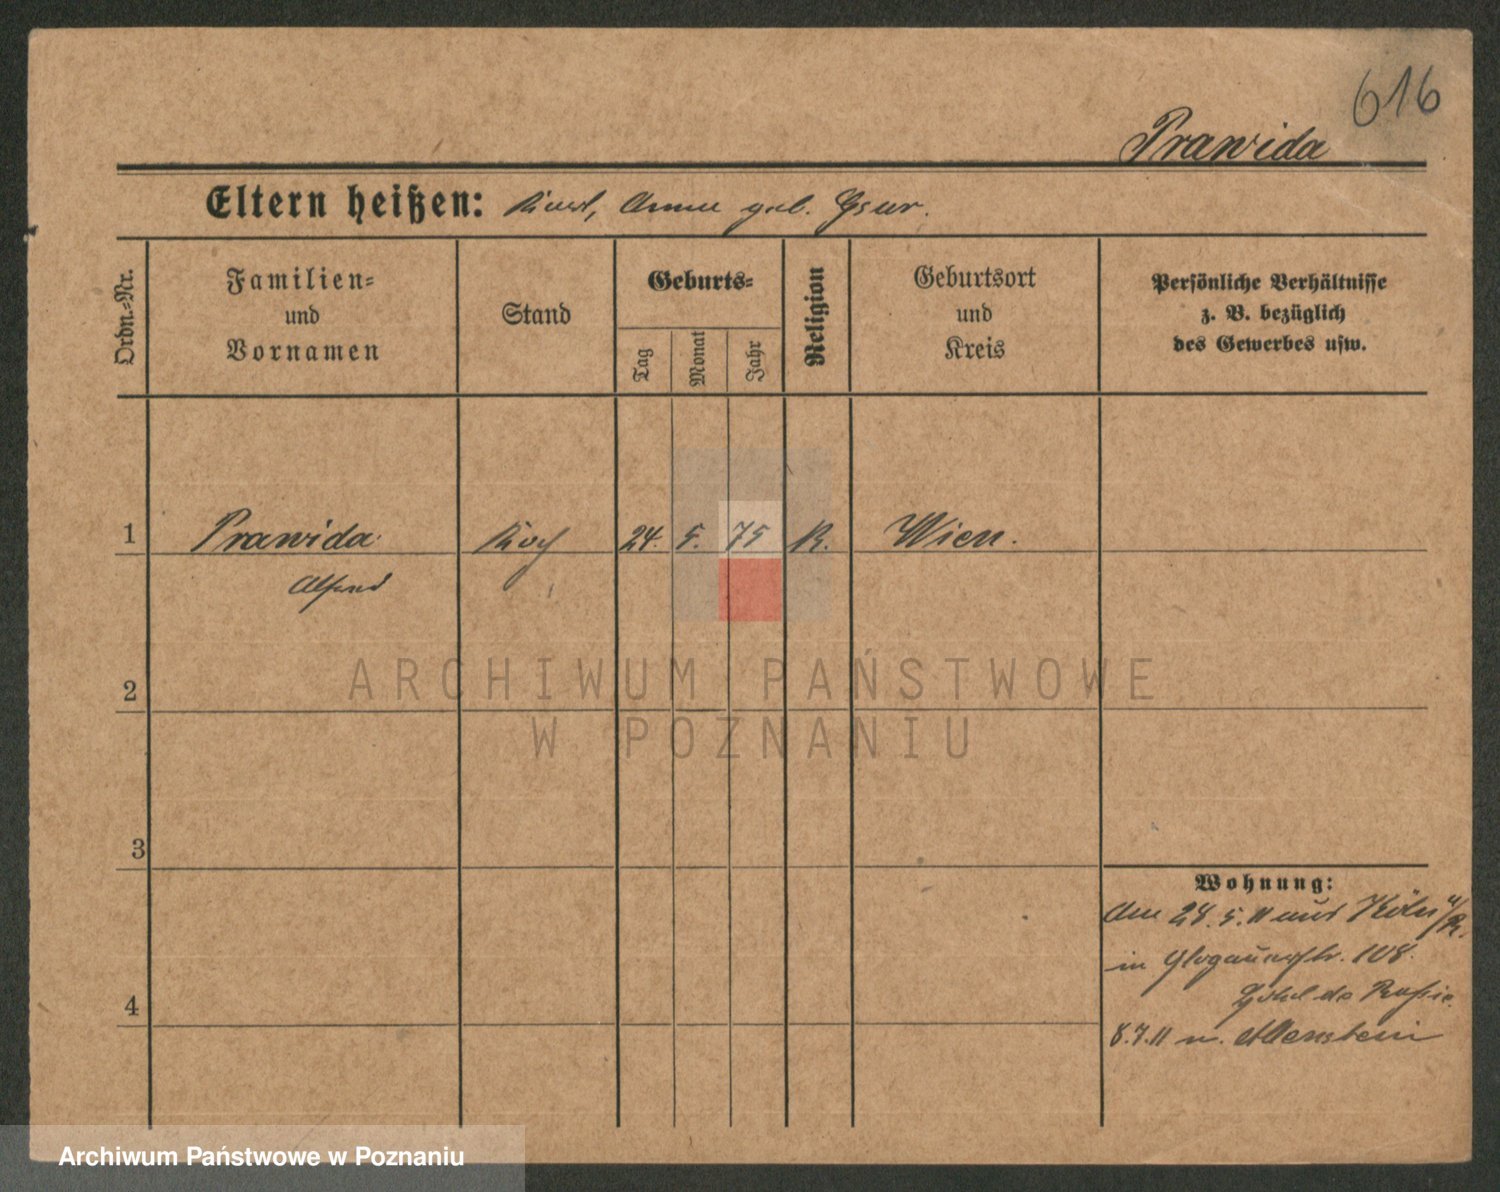 616
Prawida
Eltern heißen: Anna geb.
Ordn.-Nr.
Familien-
und
Vornamen
Stand
Geburts-
Tag
Monat
Jahr
Religion
Geburtsort
und
Kreis
Persönliche Verhältnisse
z. B. bezüglich
des Gewerbes usw.
1 Prawida Koch 24. 5. 75 R. Wien.
Alfred
2
3
4
Wohnung:
am 24.5.11 aus Köln a/R.
in Glogauerstr. 108.
Hotel de Russie.
8.7.11 n. Allenstein
ARCHIWUM PAŃSTWOWE
W POZNANIU
Archiwum Państwowe w Poznaniu